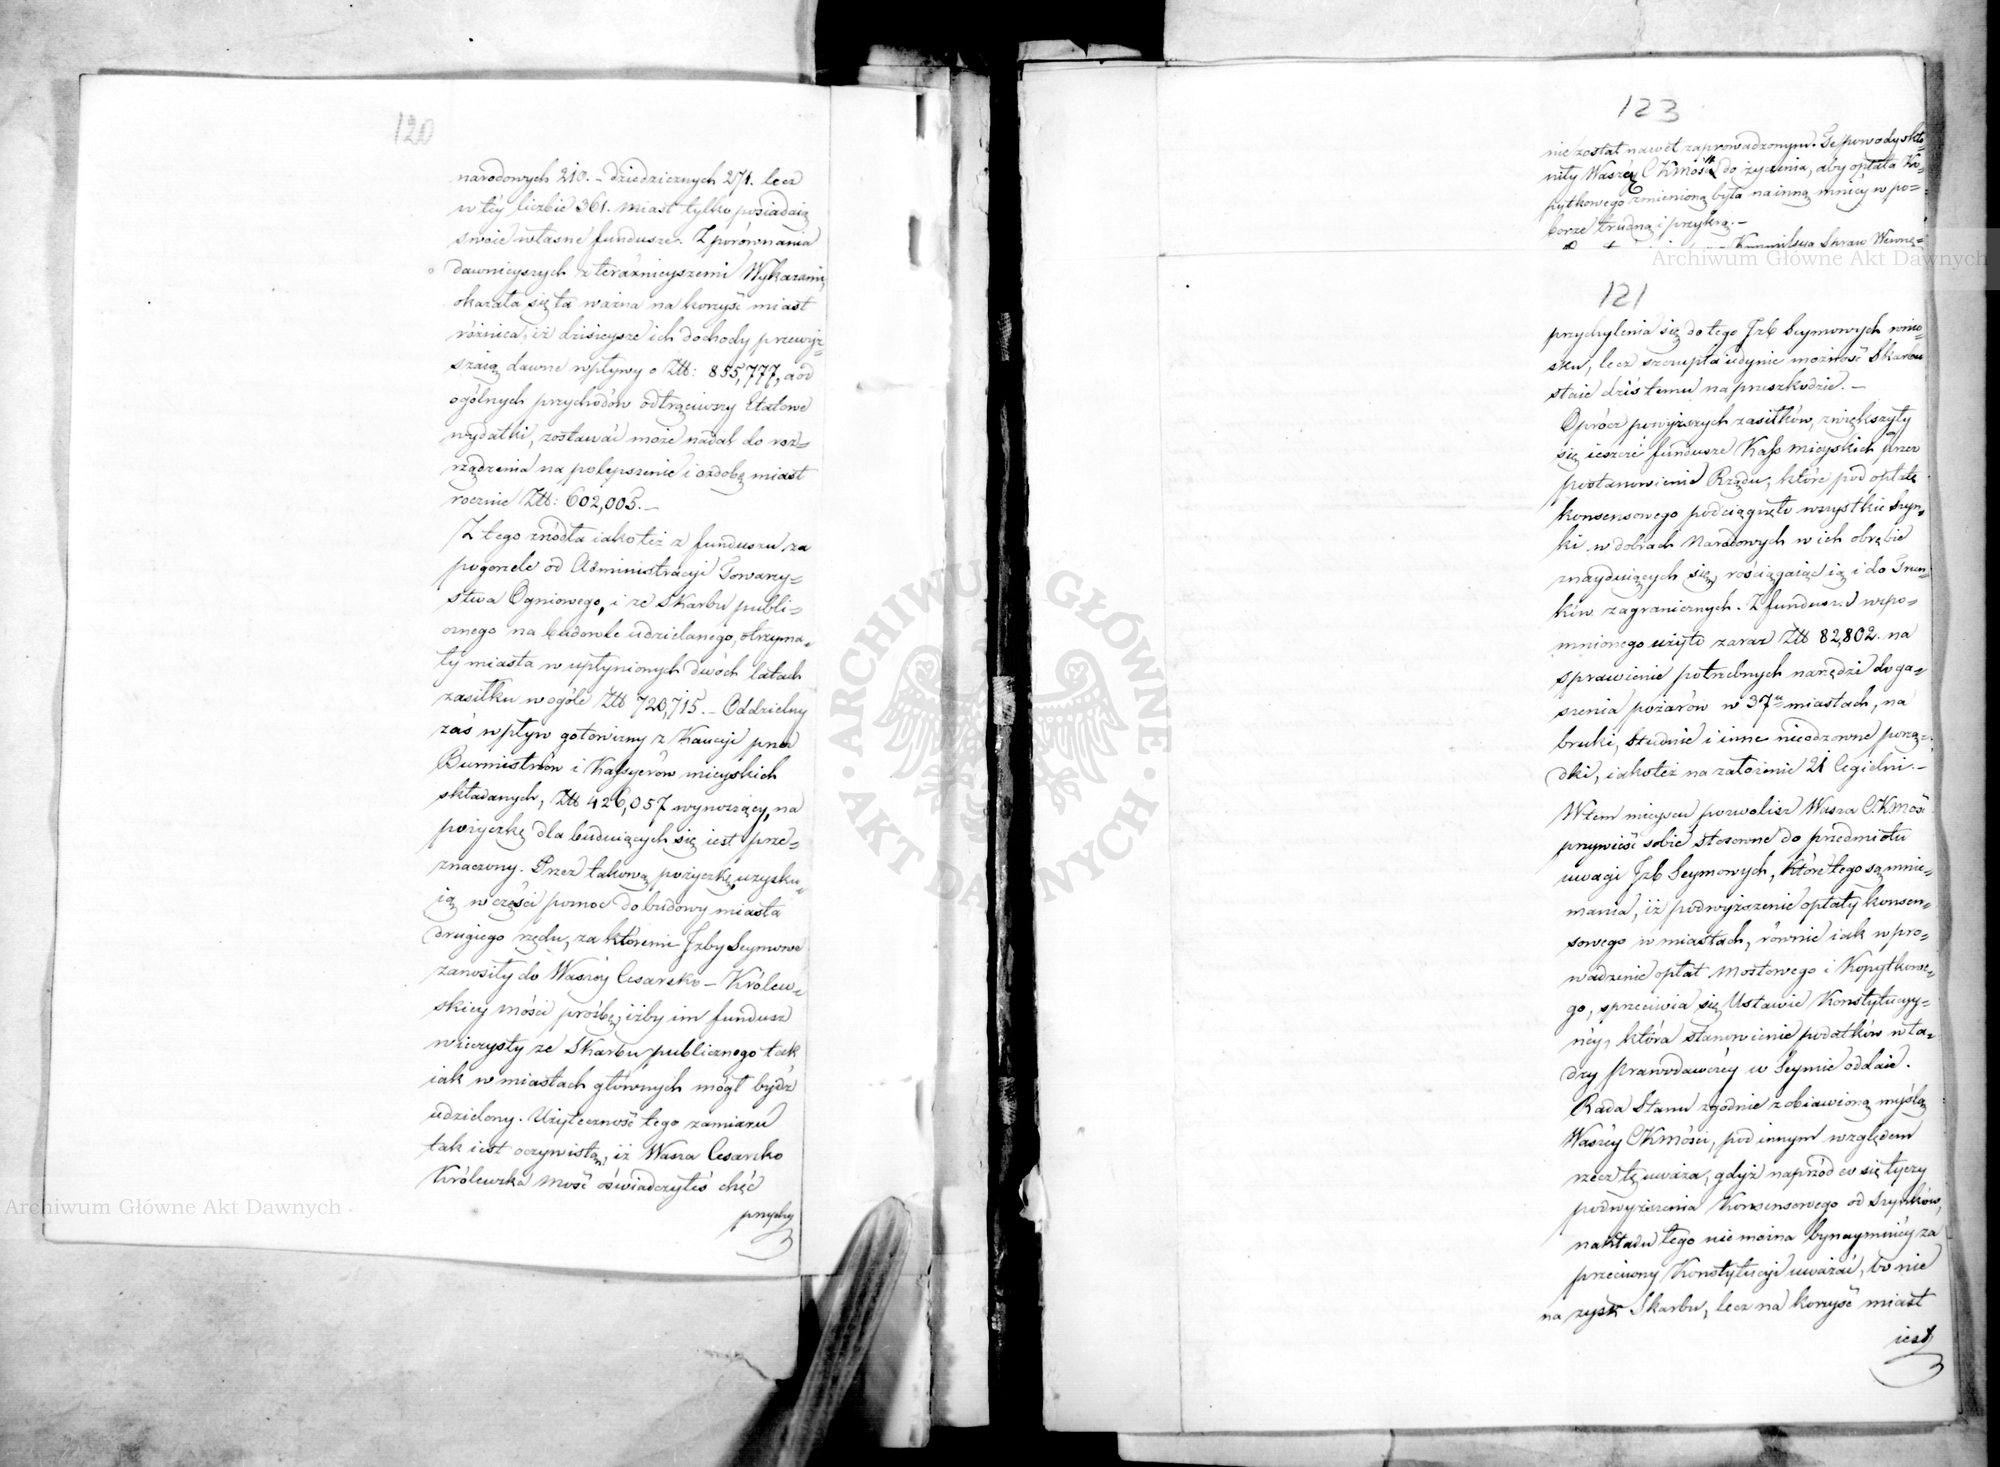 120
narodowych 210. – dziedzicznych 271. lecz
w téy liczbie 361. miast tylko posiadaią
swoie własne fundusze. Z porównania
dawnieyszych z teraźnieyszemi Wykazami,
okazała się ta ważna na korzyść miast
różnica, iż dzisieysze ich dochody przewyż-
szaią dawne wpływy o Złł: 855,777, a od
ogólnych przychodów odtrąciwszy Etatowe
wydatki, zostawać może nadal do roz-
rządzenia na polepszenie i ozdobę miast
rocznie Złł: 602,005. –
Z tego źródła iako też z funduszu za
pogorzele od Administracyi Towarzy-
stwa Ogniowego, i ze Skarbu publi-
cznego na budowle udzielanego, otrzyma-
ły miasta w upłynionych dwóch latach
zasiłku w ogóle Złł 720,715. – Oddzielny
zaś wpływ gotowizny z Kaucyi przez
Burmistrzów i Kassyerów mieyskich
składanych, Złł 426,057 wynoszący, na
pożyczkę dla buduiących się iest prze-
znaczony. Przez takową pożyczkę, uzysku-
ią w części pomoc do budowy miasta
drugiego rzędu, za któremi Izby Seymowe
zanosiły do Waszéy Cesarsko – Królew-
skiey Mości prośbę, iżby im fundusz
wieczysty ze Skarbu publicznego tak
iak w miastach głównych mógł bydź
udzielony. Użyteczność tego zamiaru
tak iest oczywistą, iż Wasza Cesarsko
Królewska Mość oświadczyłeś chęć
przychy
123
nie został nawet zaprowadzonym. Te powody skło-
niły Waszéy CKMość do życzenia, aby opłata Ko-
pytkowego zmienioną była na inną mniéy w po-
borze trudną i przykrą. –
Kommissya Spraw Wewnę-
121
przychylenia się do tego Izb Seymowych wnio-
sku, lecz szczupła iedynie możność Skarbu
staie dziś temu na przeszkodzie. –
Oprócz powyższych zasiłków, zwiększyły
się ieszcze fundusze Kass Mieyskich przez
postanowienie Rządu, które pod opłatę
konsensowego podciągnęło wszystkie szyn-
ki w dobrach Narodowych w ich obrębie
znayduiących się, rościągaiąc ią i do Trun-
ków zagranicznych. Z fundusz.u wspo-
mnionego użyto zaraz Złł 82,802. na
sprawienie potrzebnych narzędzi do ga-
szenia pożarów w 37u miastach, na
bruki, studnie i inne nieodzowne porzą-
dki, iako też na założenie 21 Cegielni. –
W tem mieyscu pozwolisz Wasza C.K.Mość
przywieść sobie stosowne do przedmiotu
uwagi Izb Seymowych, które tego są mnie-
mania, iż podwyższenie opłaty konsen-
sowego w miastach, równie iak wpro-
wadzenie opłat Mostowego i Kopytkowe-
go, sprzeciwia się Ustawie Konstytucyy-
néy, która stanowienie podatków wła-
dzy prawodawczéy w Seymie oddaie.
Rada Stanu zgodnie z obiawioną myślą
Waszéy CKMości, pod innym względem
rzecz tę uważa, gdyż naprzód co się tyczy
podwyższenia Konsensowego od szynków,
nakładu tego nie można bynaymniéy za
przeciwny Konstytucyi uważać, bo nie
na zysk Skarbu, lecz na korzyść miast
iest